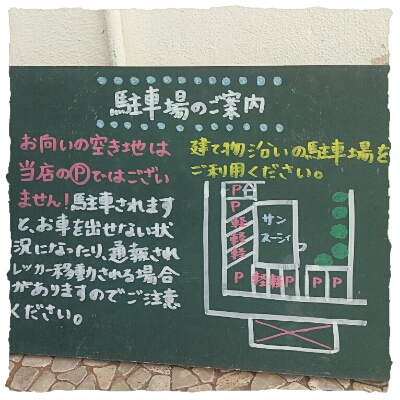 駐車場のご案内
お向いの空き地は
当店のⓅではござい
ません!駐車されます
と、お車を出せない状
況になったり、通報され
レッカー移動される場合
がありますのでご注意
ください。
建て物沿いの駐車場を
ご利用ください。
P
P
軽
軽
軽
サン
スーシィ
P 軽 軽 P P P